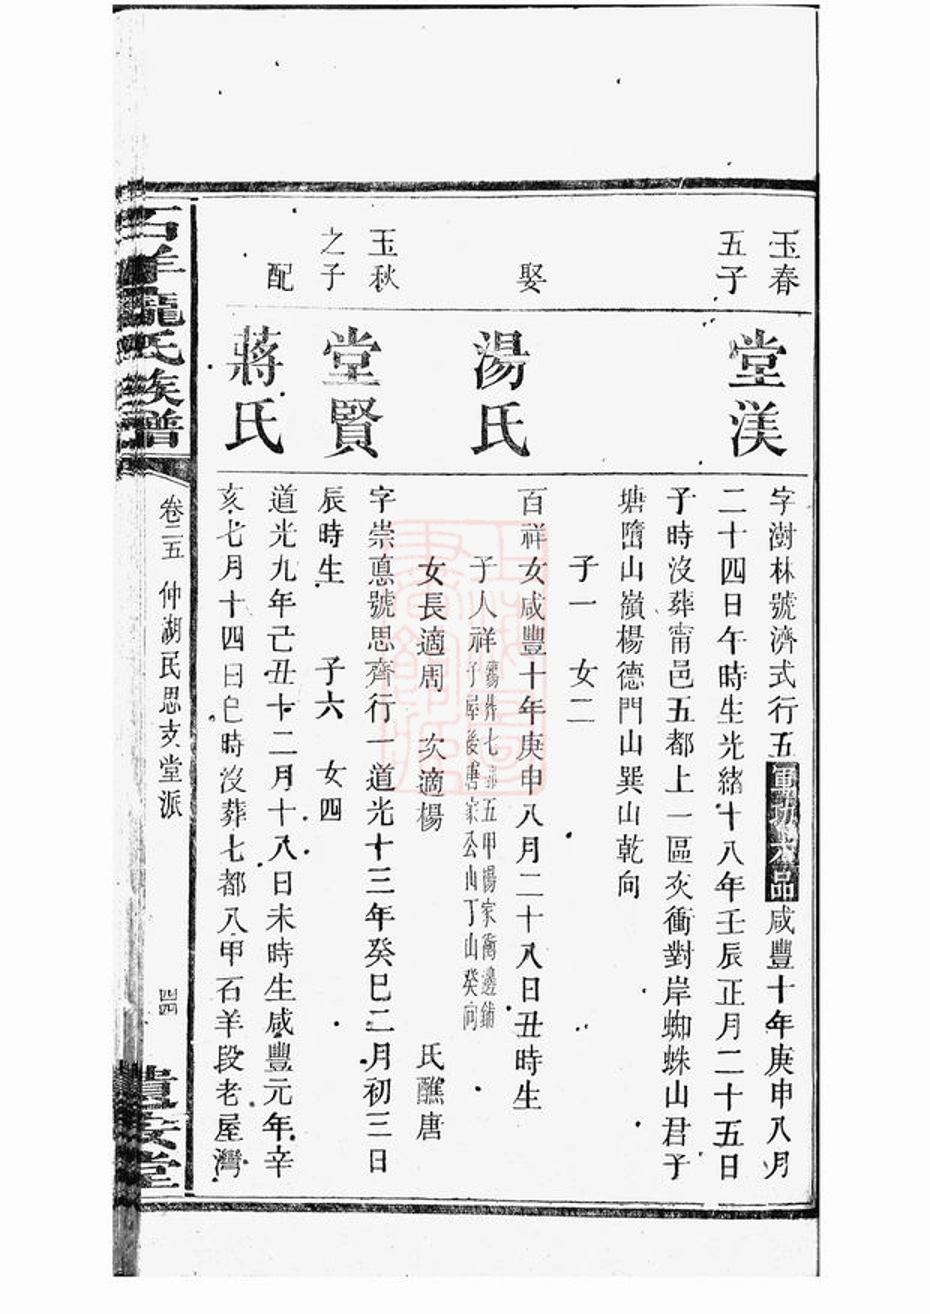 玉春
五子
堂渼
字澍林號濟式行五軍功六品咸豐十年庚申八月
二十四日午時生光緒十八年壬辰正月二十五日
子時沒葬甯邑五都上一區灰衝對岸蜘蛛山君子
塘墮山嶺楊德門山巽山乾向
子一 女二
娶
湯氏
百祥女咸豐十年庚申八月二十八日丑時生
子人祥
殤葬七都五甲楊家衝邊鋪
子屋後唐家公山丁山癸向
女長適周 次適楊 氏醮唐
玉秋
之子
堂賢
字崇悳號思齊行一道光十三年癸巳二月初三日
辰時生 子六 女四
配
蔣氏
道光九年己丑十二月十八日未時生咸豐元年辛
亥七月十四日巳時沒葬七都八甲石羊段老屋灣
石羊龍氏族譜
卷二五 仲湖民思支堂派
堂